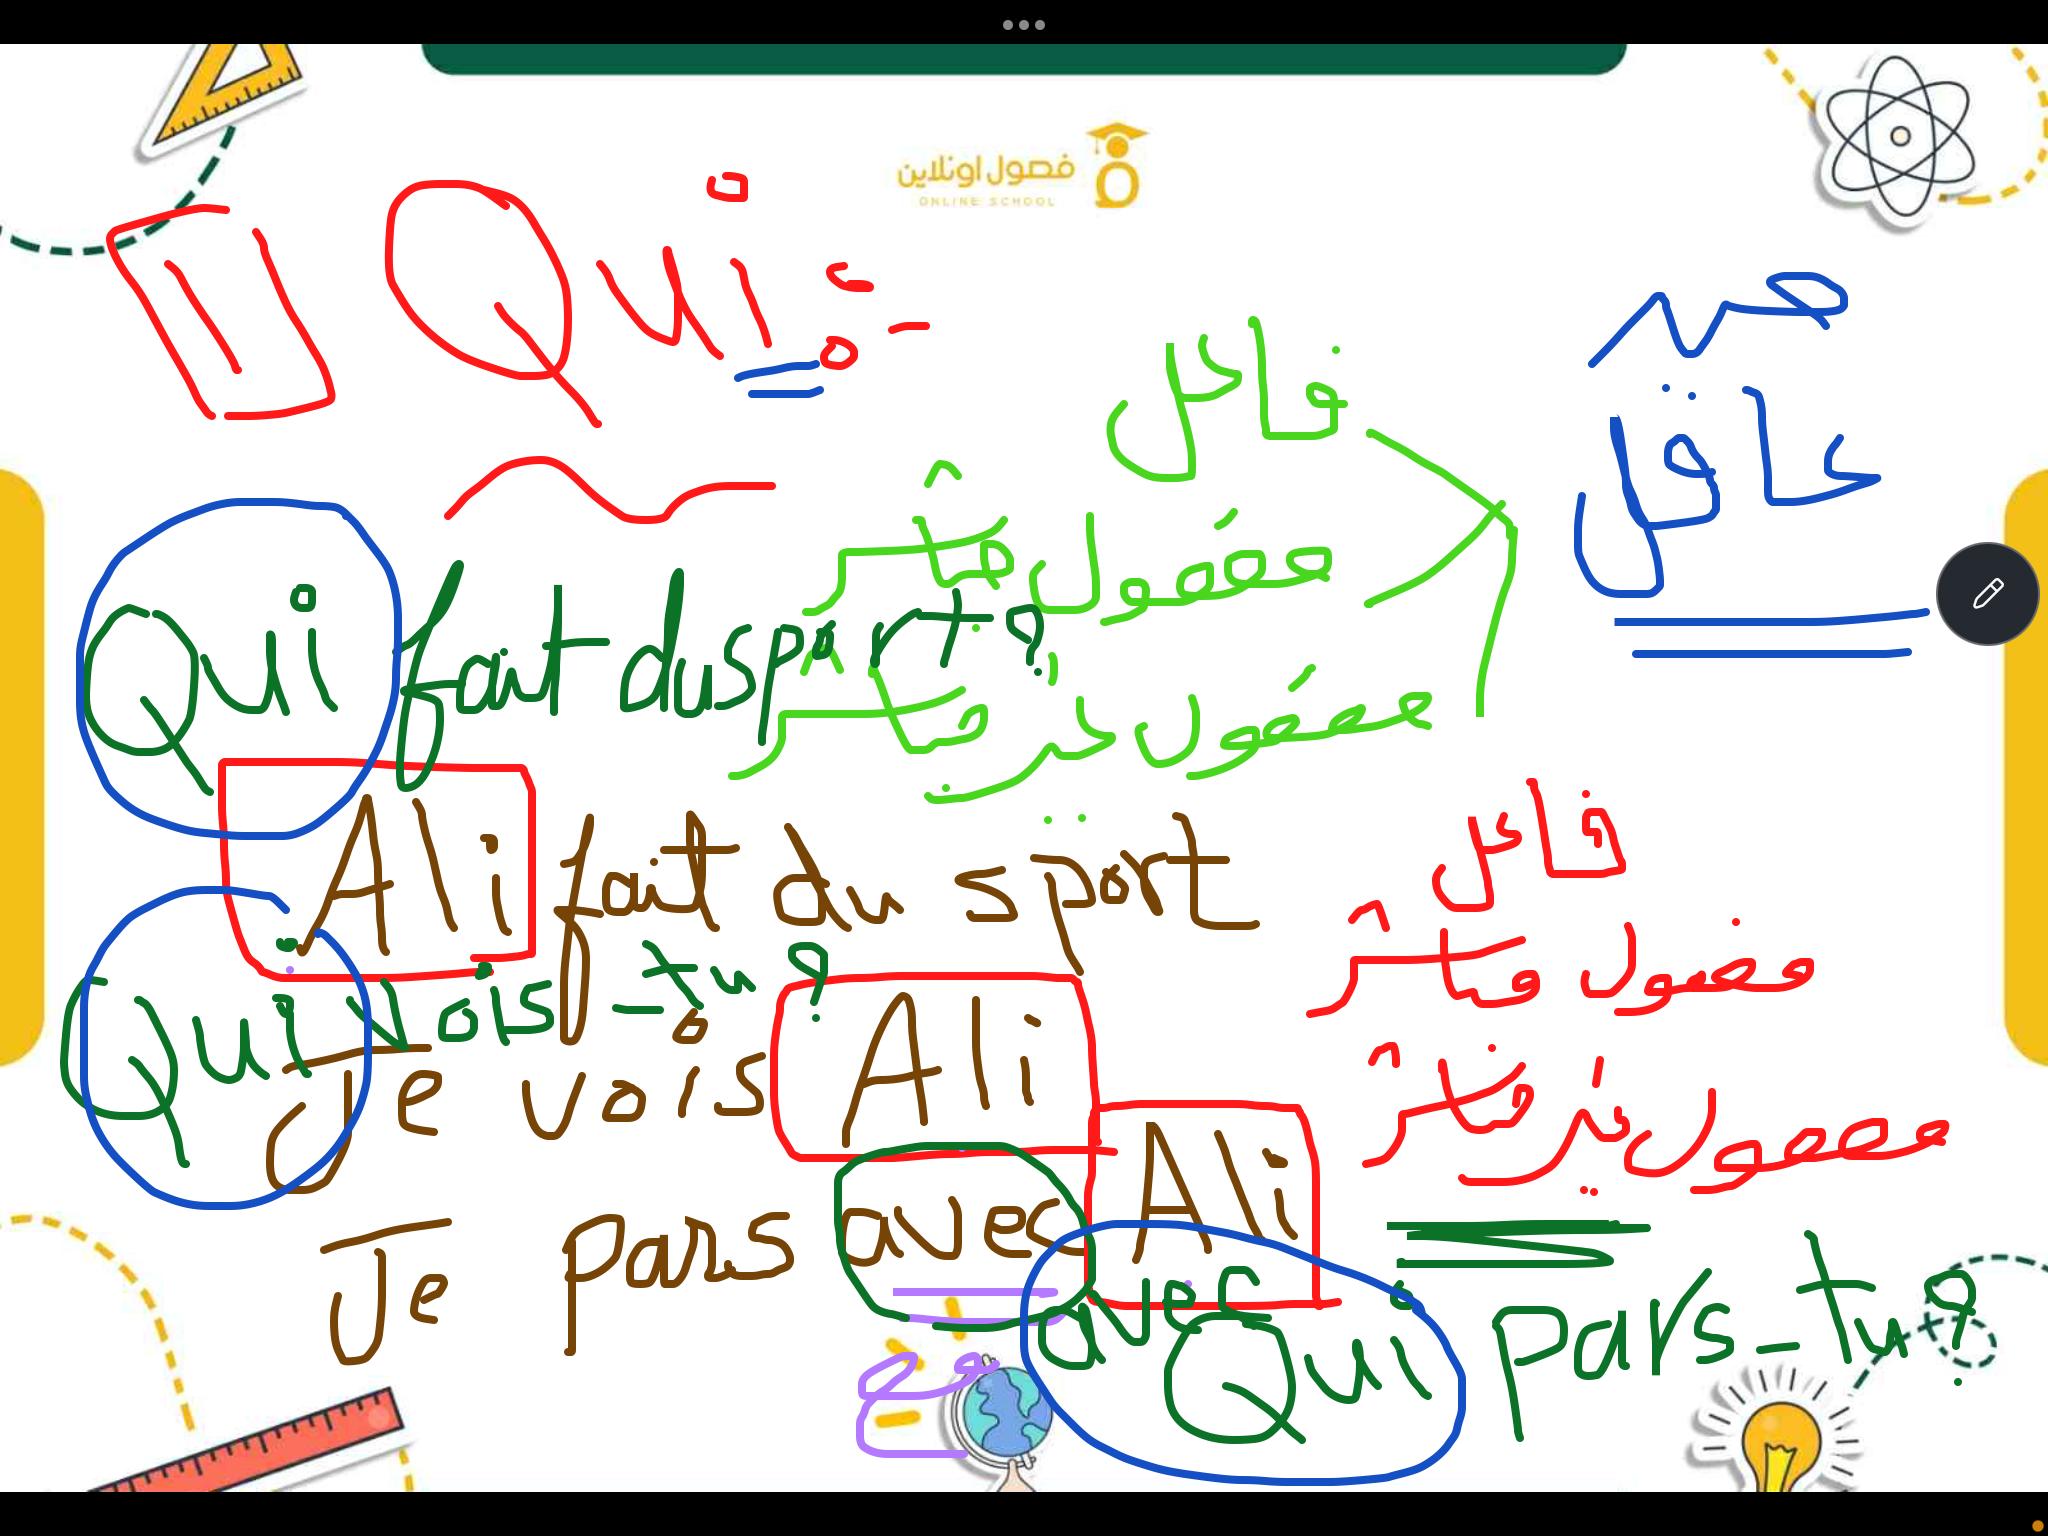 فصول اونلاين
ONLINE SCHOOL
1 Qui :-
من
عاقل
فاعل
مفعول مباشر
مفعول غير مباشر
Qui fait du sport ?
Ali fait du sport
فاعل
Qui vois-tu ?
مفعول مباشر
Je vois Ali
مفعول غير مباشر
Je pars avec Ali
مع
avec Qui pars-tu ?